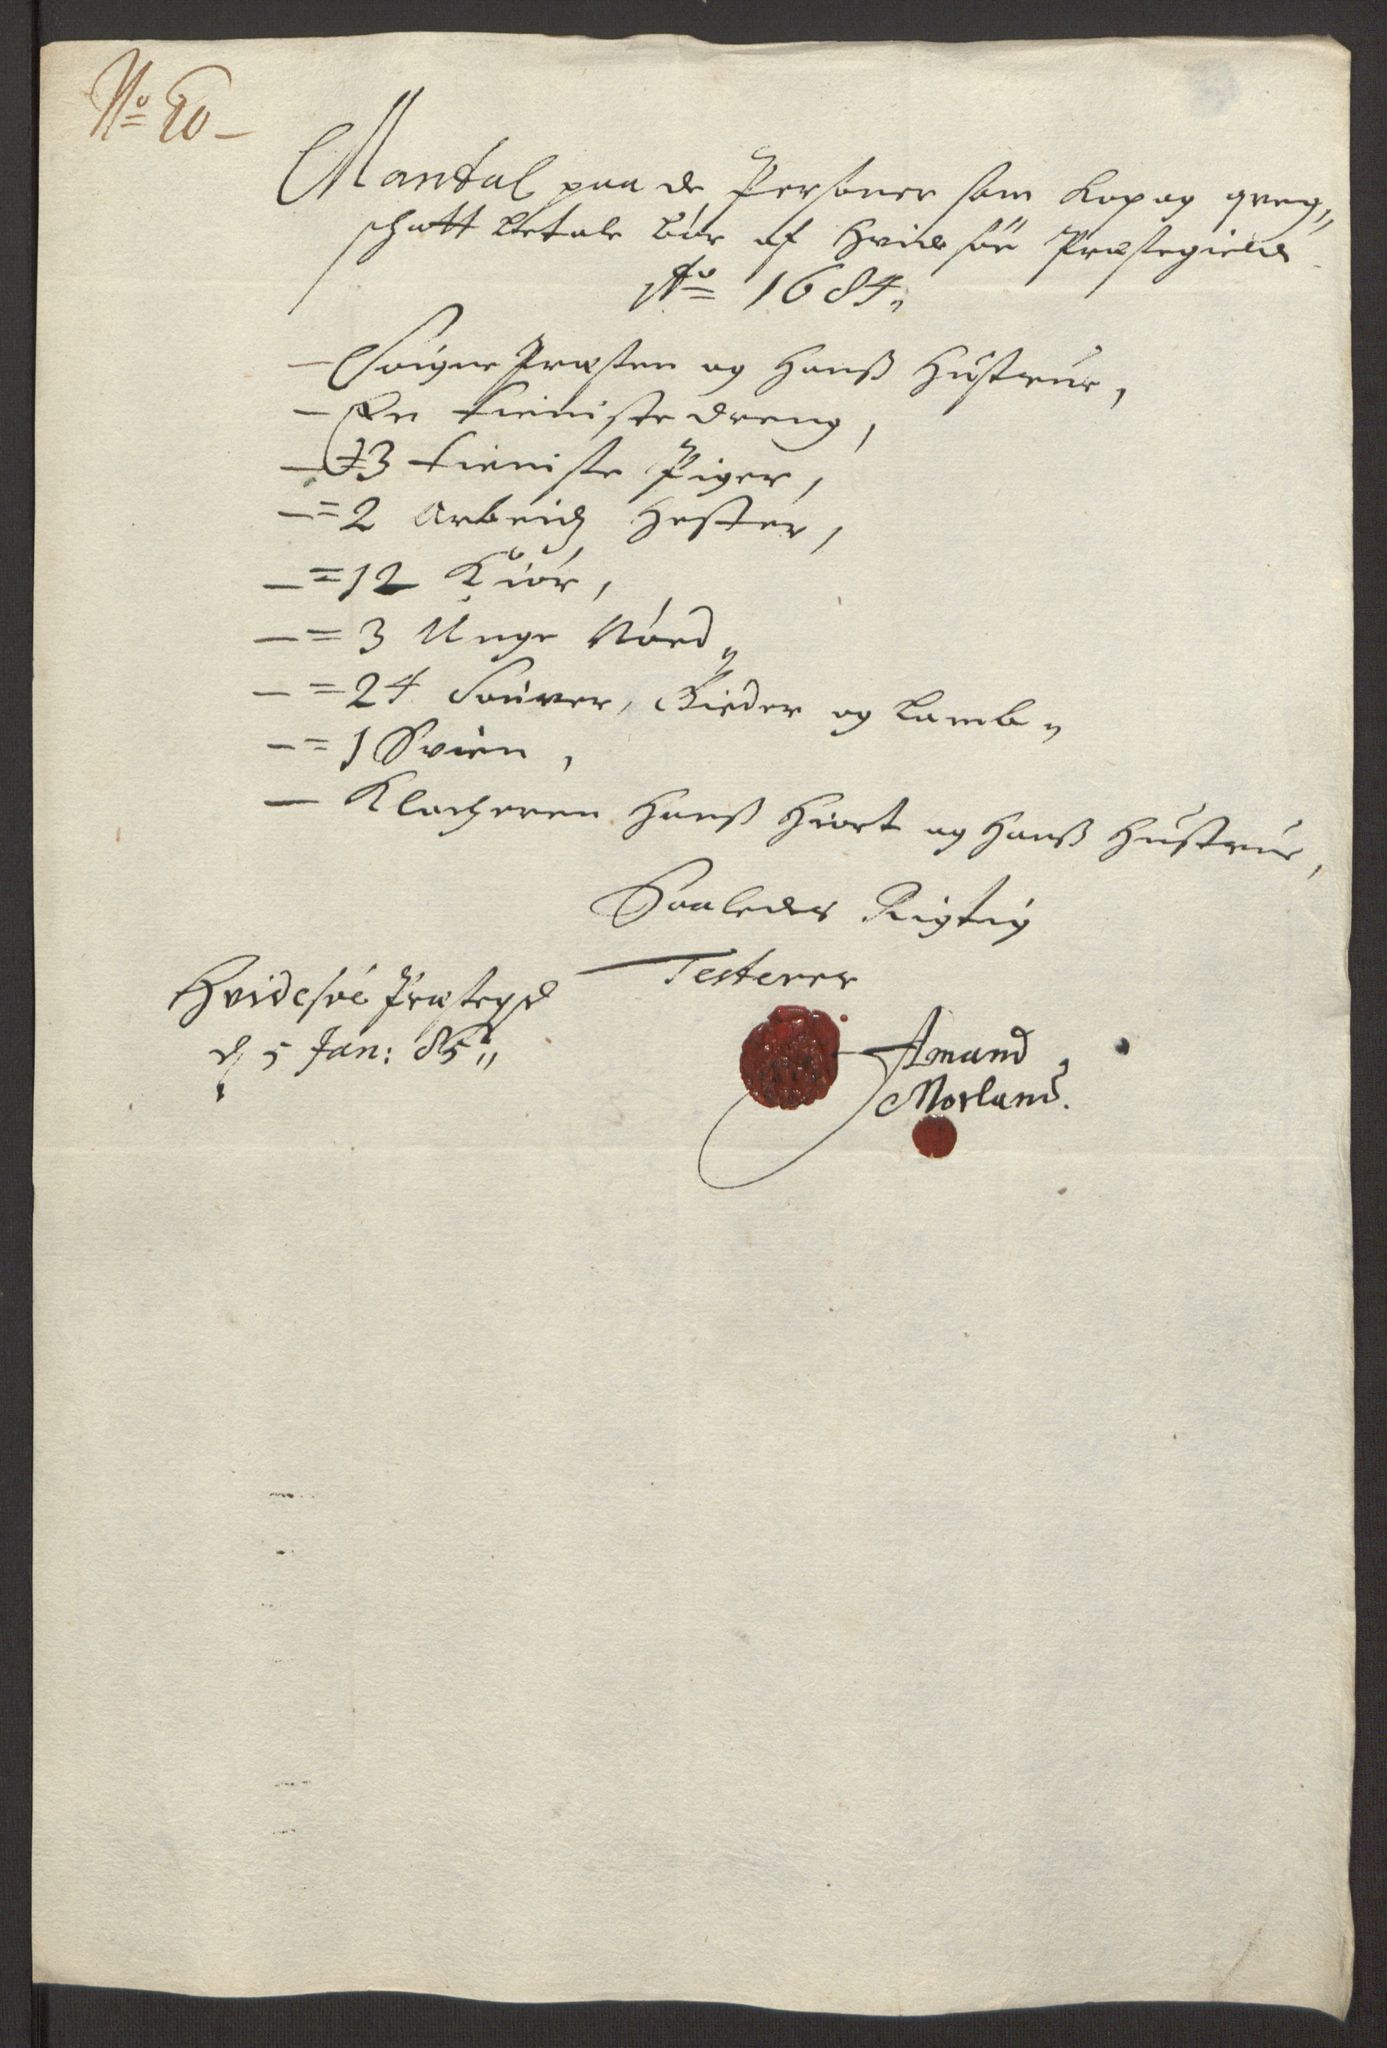 No 60
Mantal paa de Personer som Kop og qveg
schatt betale bör af Hvidesöe Præstegield
Ao 1684
Sougne Præsten og Hanß Hustrue,
En tieniste dreng,
3 tieniste Piger,
= 2 Arbeidz Hester,
= 12 Kiör,
= 3 Unge Nöed
= 24 Souver, Gieder og Lamb
= 1 Svien,
Klocheren Hanß Hiort og Hanß Hustrue,
Saaledes Rigtig
Testerer
Hvidesöe Præstegd
d. 5 Jan: 85
Amand
Morland.